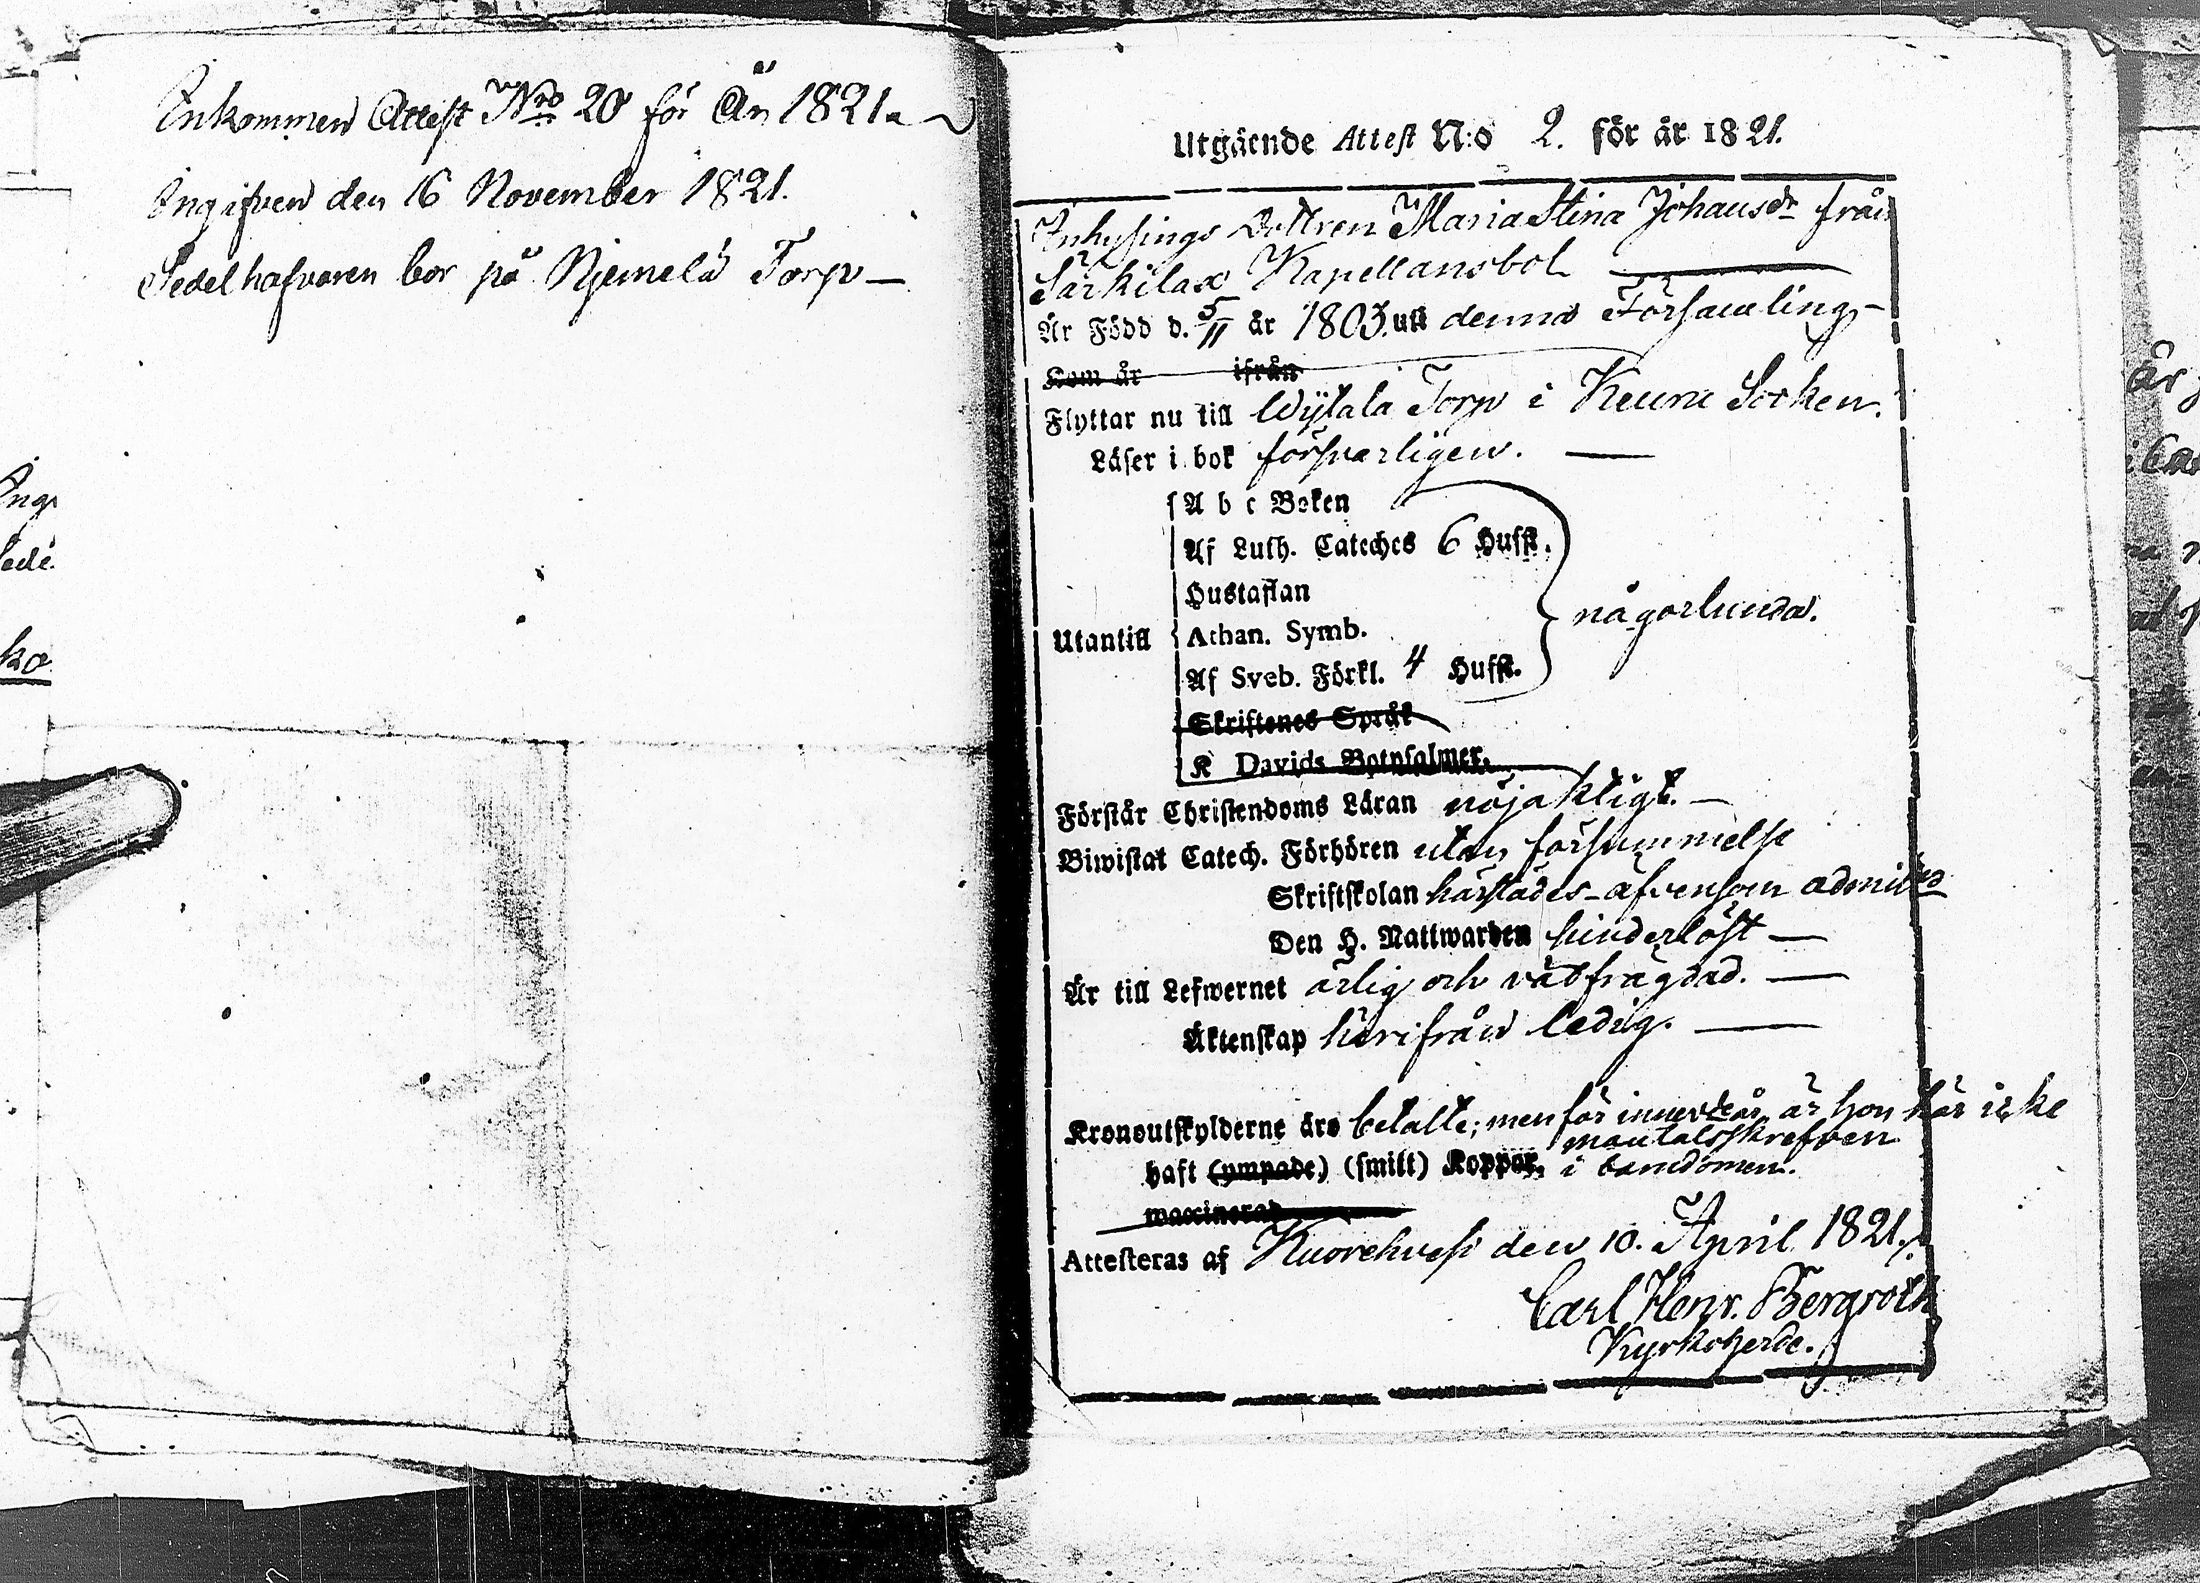 Inkommen Attest Nro 20 för År 1821.
Ingifven den 16 November 1821.
Sedelhafvaren bor på Njemelä Torp —
Utgående Attest N:o 2. för år 1821.
Inhysings Dottren Maria Stina Johansdr från
Särkilax Kapellansbol
Är Född d. 5/11 år 1803. uti denna Församling –
Kom år ifrån
Flyttar nu till Wijtala Torp i Keuru Socken.
Läser i bok försvarligen. —
A b c Boken
Af Luth. Cateches 6 Hufst.
Hustaflan
någorlunda.
Utantill Athan. Symb.
Af Sveb. Förkl. 4 Hufst.
Skriftenes Språk
K Davids Botpsalmer.
Förstår Christendoms Läran nöjaktigt. —
Biwistat Catech. Förhören utan försummelse
Skriftskolan härstädes – äfvensom
Den H. Nattwarden hinderlöst —
Är till Lefwernet ärlig och välfrägdad. —
Äktenskap härifrån ledig. —
Kronoutskylderne äro betalte; men för innevde år är hon här icke
mantalsskrefven
haft (ympade) (smitt) Koppor. i barndomen.
waccinerad
Attesteras af Kuorehvesi den 10. April 1821.
Carl Henr. Bergroth
Kyrkoherde.